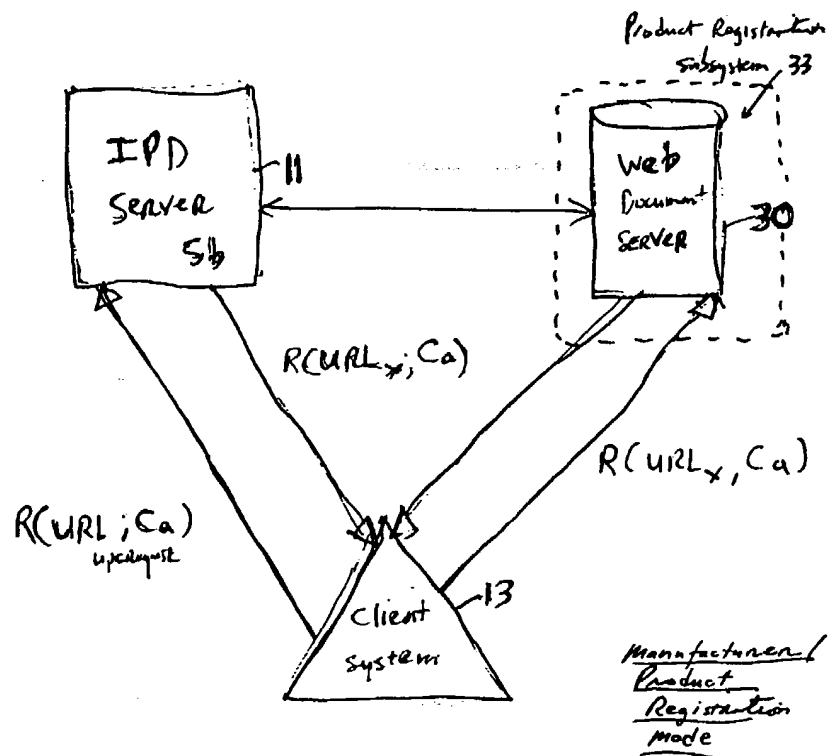 Product Registration
Subsystem 33
IPD
Server
11
Web
Document
Server
30
R(URLx; Ca)
R(URLx, Ca)
R(URL; Ca)
Client
System
13
Manufacturer /
Product
Registration
Mode